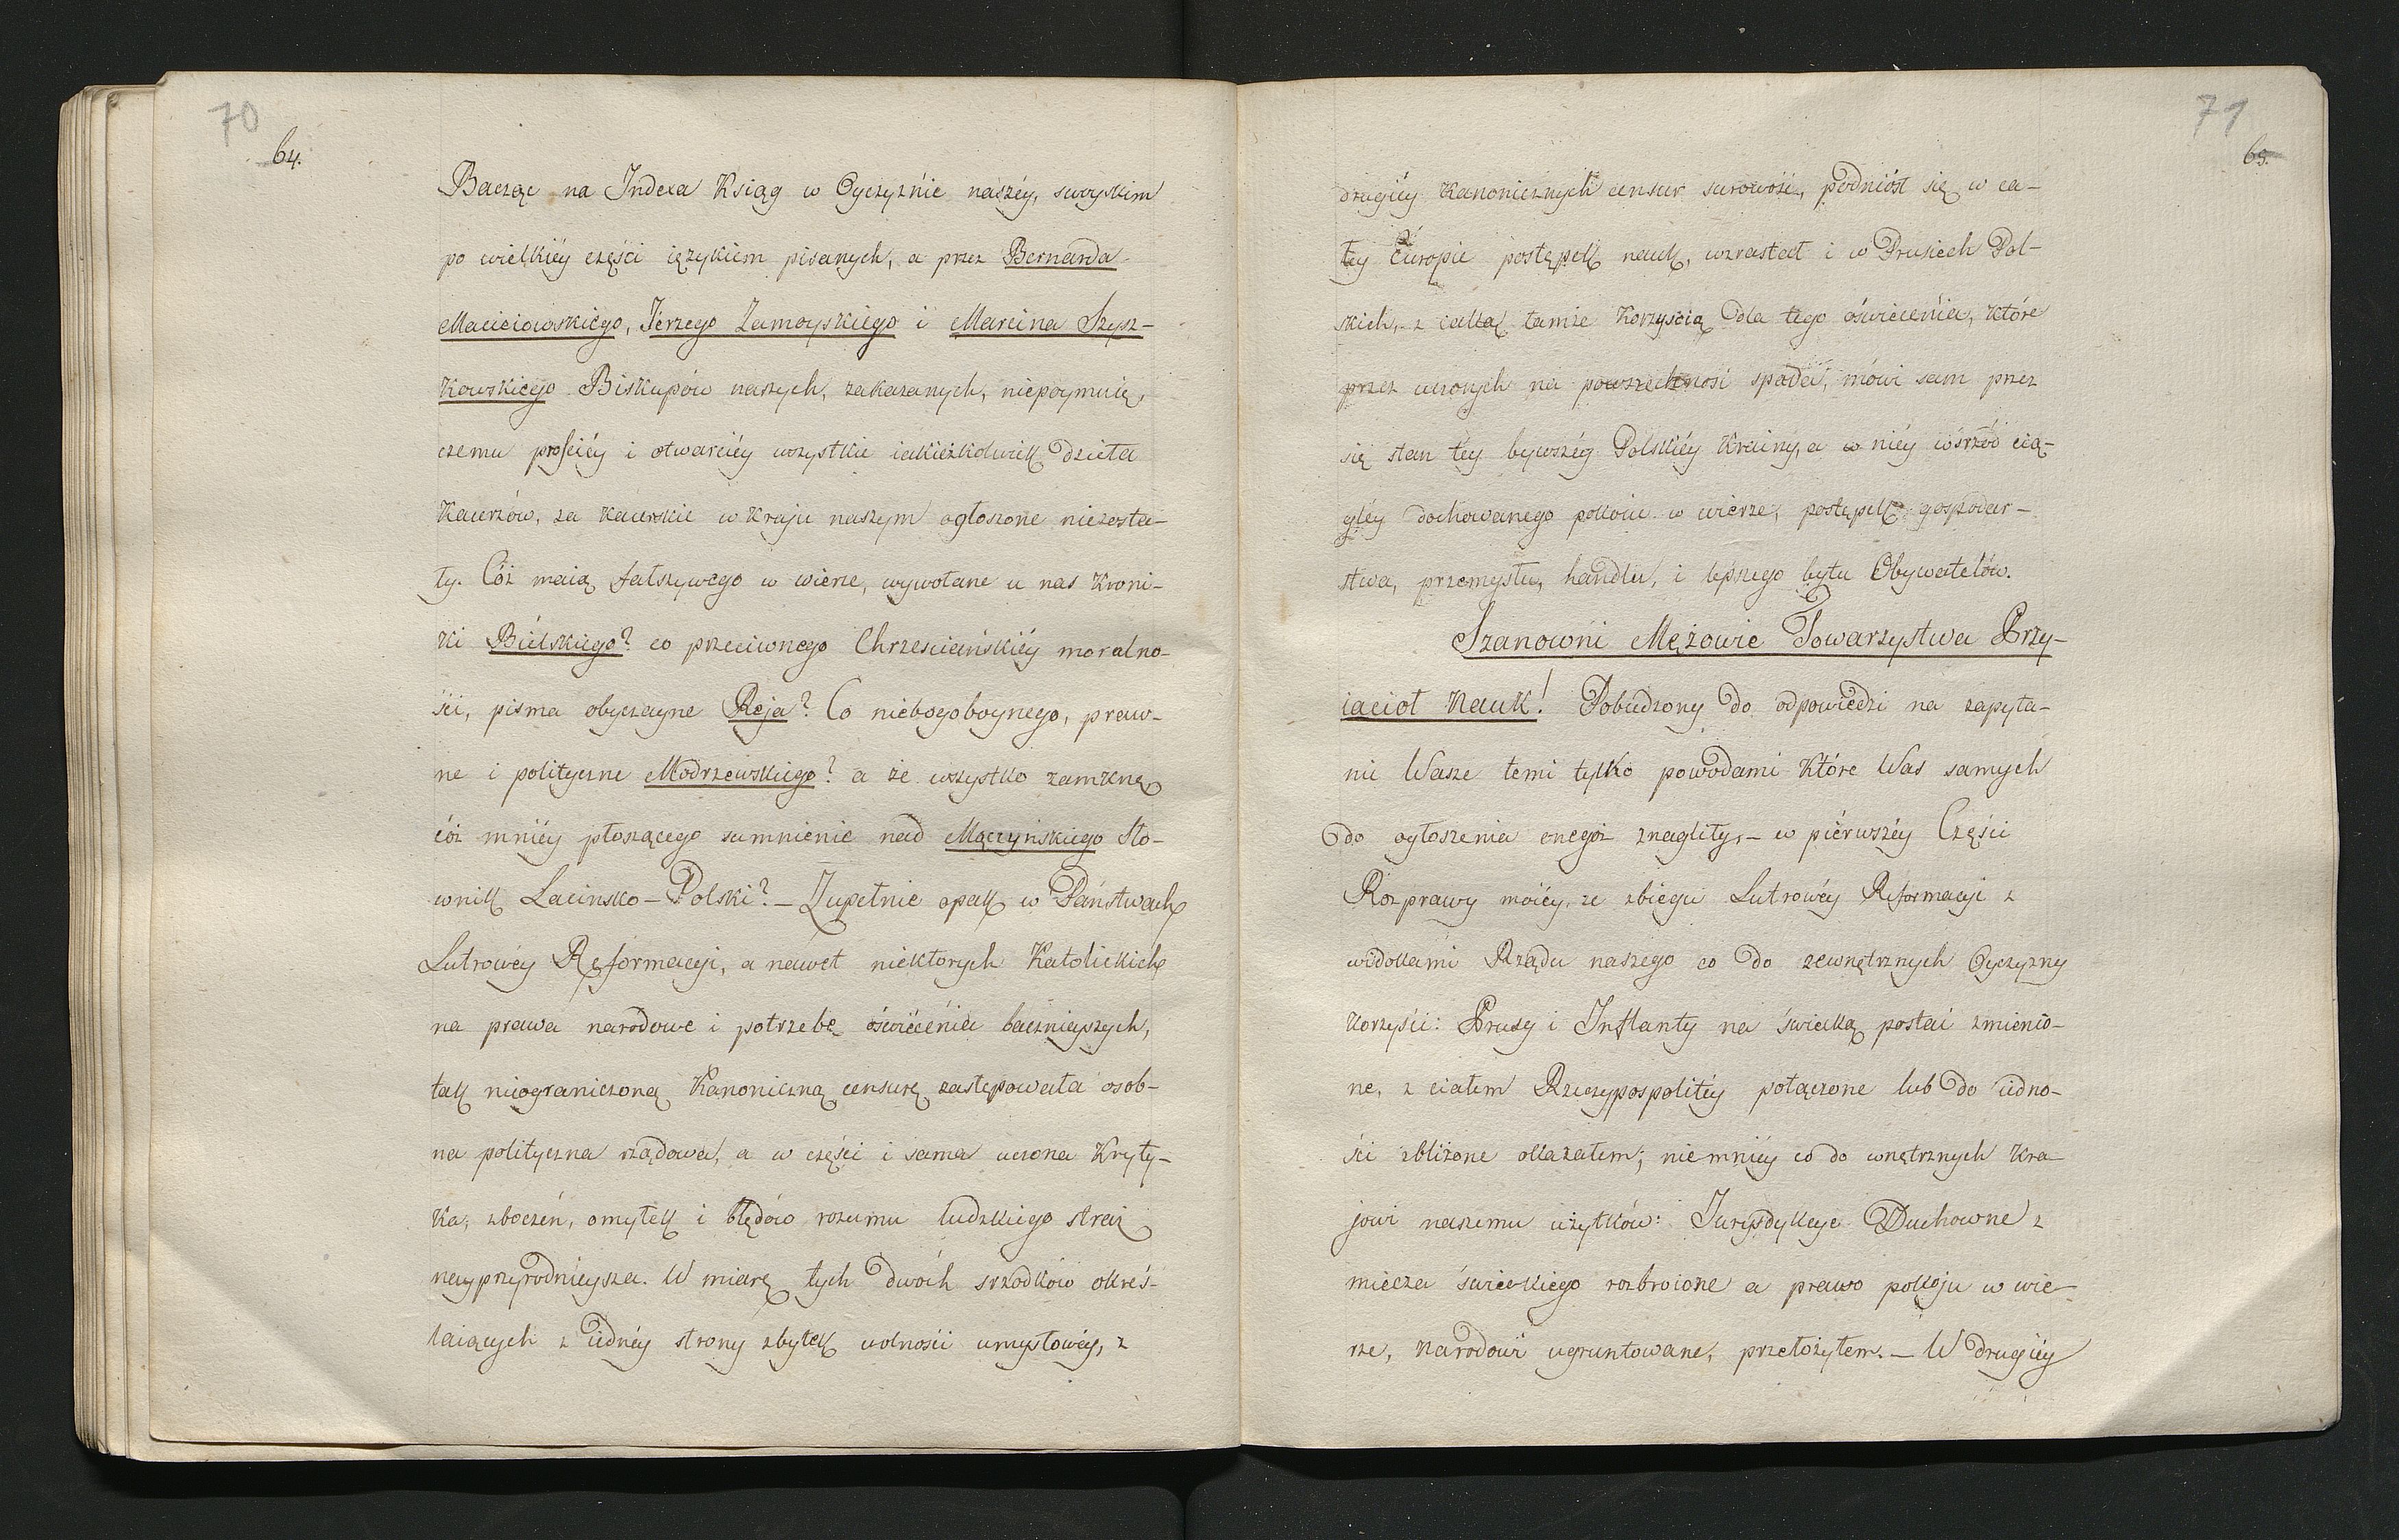 70
64.
Bacząc na Indexa Ksiąg w Oyczyźnie naszéy, swoyskim
po wielkiéy części ięzykiem pisanych, a przez Bernarda
Macieiowskiego, Jerzego Zamoyskiego i Marcina Szysz-
kowskiego Biskupów naszych, zakazanych, niepoymuię,
czemu prościéy i otwarciéy wszystkie iakieżkolwiek dzieła
Kacerzów, za kacerskie w kraju naszym ogłoszone niezosta-
ły. Cóż maią fałszywego w wierze, wywołane u nas kroni-
ki Biélskiego? co przeciwnego Chrześciańskiéy moralno-
ści, pisma obyczayne Reja? Co niebogoboynego, praw-
ne i polityczne Modrzewskiego? a że wszystko zamknę,
cóż mniéy płoszącego sumnienie nad Mączyńskiego Sło-
wnik Łacinsko-Polski? – Zupełnie opak w Państwach
Lutrowéy Reformacyi, a nawet niektorych Katolickich
na prawa narodowe i potrzebę oświecénia bacznieyszych,
tak niograniczoną Kanoniczną censurę zastępowała osob-
na polityczna rządowa, a w części i sama uczona Kryty-
ka, zboczeń, omyłek i błędów rozumu ludzkiego straż
nayprzyrodnieysza. W miarę tych dwóch srzodków okreś-
laiących z iednéy strony zbytek wolności umysłowéy, z
71
65.
drugiéy Kanonicznych censur surowość, podniósł się w ca-
łéy Europie postępek nauk, wzrastał i w Prusiech Pol-
skich, z całką tamże korzyścią dla tego oświecénia, które
przez uczonych na powszechność spada, mówi sam przez
się stan téy bywszéy Polskiéy Krainy, a w niéy wśrzód cią-
gléy dochowanego pokoiu w wierze, postępek gospodar-
stwa, przemysłu, handlu, i lepszego bytu Obywatelów.
Szanowni Mężowie Towarzystwa Przy-
iaciół Nauk! Pobudzony do odpowiedzi na zapyta-
nie Wasze temi tylko powodami które Was samych
do ogłoszenia onegoż znagliły, – w piérwszéy Części
Rozprawy moiéy, ze zbiegu Lutrowéy Reformacyi z
widokami Rządu naszego co do zewnętrznych Oyczyzny
korzyści: Prusy i Inflanty na świecką postać zmienio-
ne, z ciałem Rzeczypospolitéy połączone lub do iedno-
ści zbliżone okazałem; niemniéy co do wnętrznych kra-
jowi naszemu użytków: Jurysdykcye Duchowne z
miecza świeckiego rozbroione a prawo pokoju w wie-
rze, narodowi ugruntowane, przełożyłem. – W drugiéy